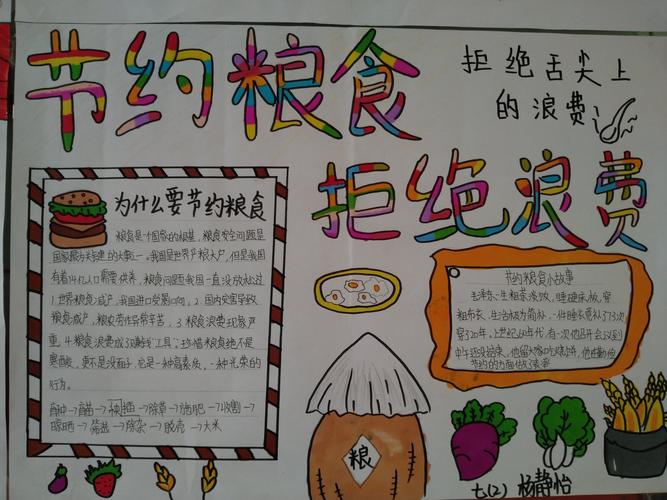 节约粮食
拒绝舌尖上
的浪费
拒绝浪费
为什么要节约粮食
粮食是一个国家的根基，粮食安全问题是
国家最为关键的大事之一。我国是世界产粮大户，但是我国
有着14亿人口需要供养，粮食问题我国一直没放松过
1 世界粮食减产，我国进口受影响，2 国内灾害导致
粮食减产，粮农劳作异常辛苦，3 粮食浪费现象严
重，4 粮食浪费成
珍惜粮食绝不是
更不是没面子，它是一种高素质，一种光荣的
行为。
育种→育苗→插秧→除草→施肥→收割→
晾晒→筛选→除杂→脱壳→大米
节约粮食小故事
毛泽东一生粗茶淡饭，睡硬床板，穿
粗布衣，生活极为简朴，一件睡衣竟补了73次
穿了20年。上世纪60年代，有一次他召开会议到
中午还没结束，他留大家吃
粮
七(2) 杨静怡